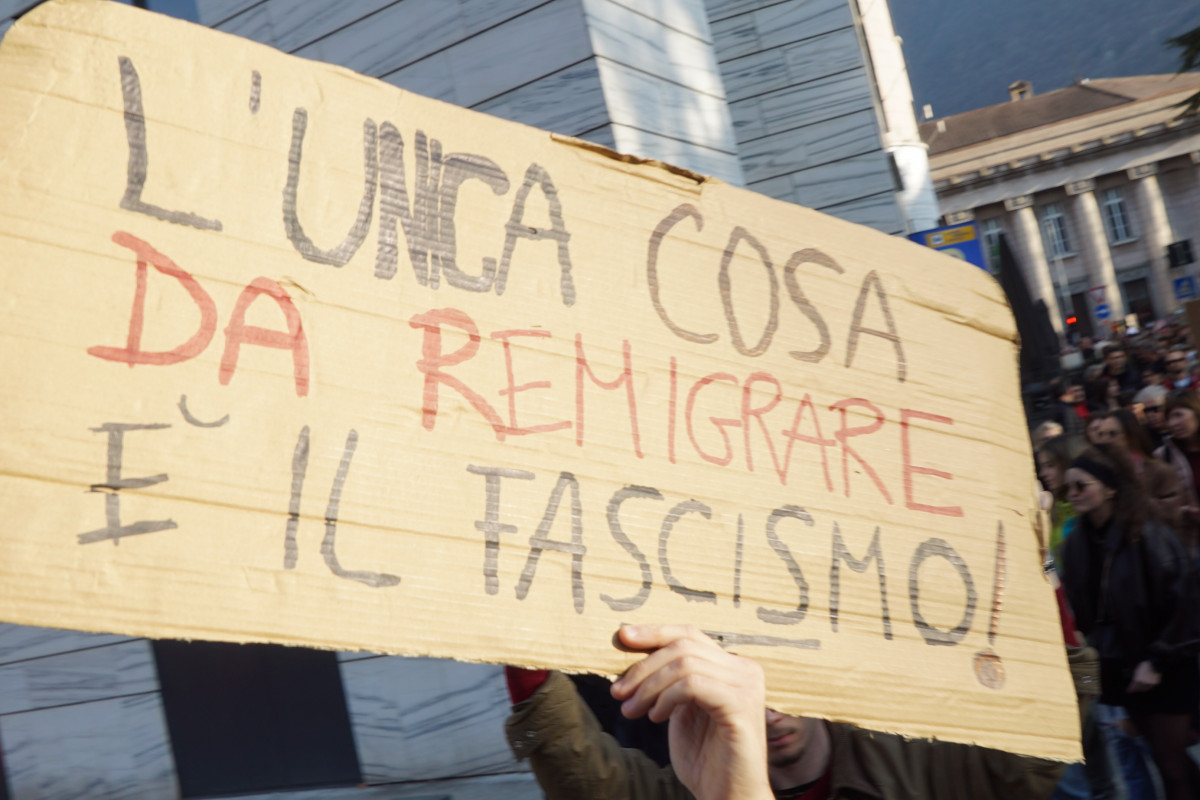 L'UNICA COSA
DA REMIGRARE
È IL FASCISMO!